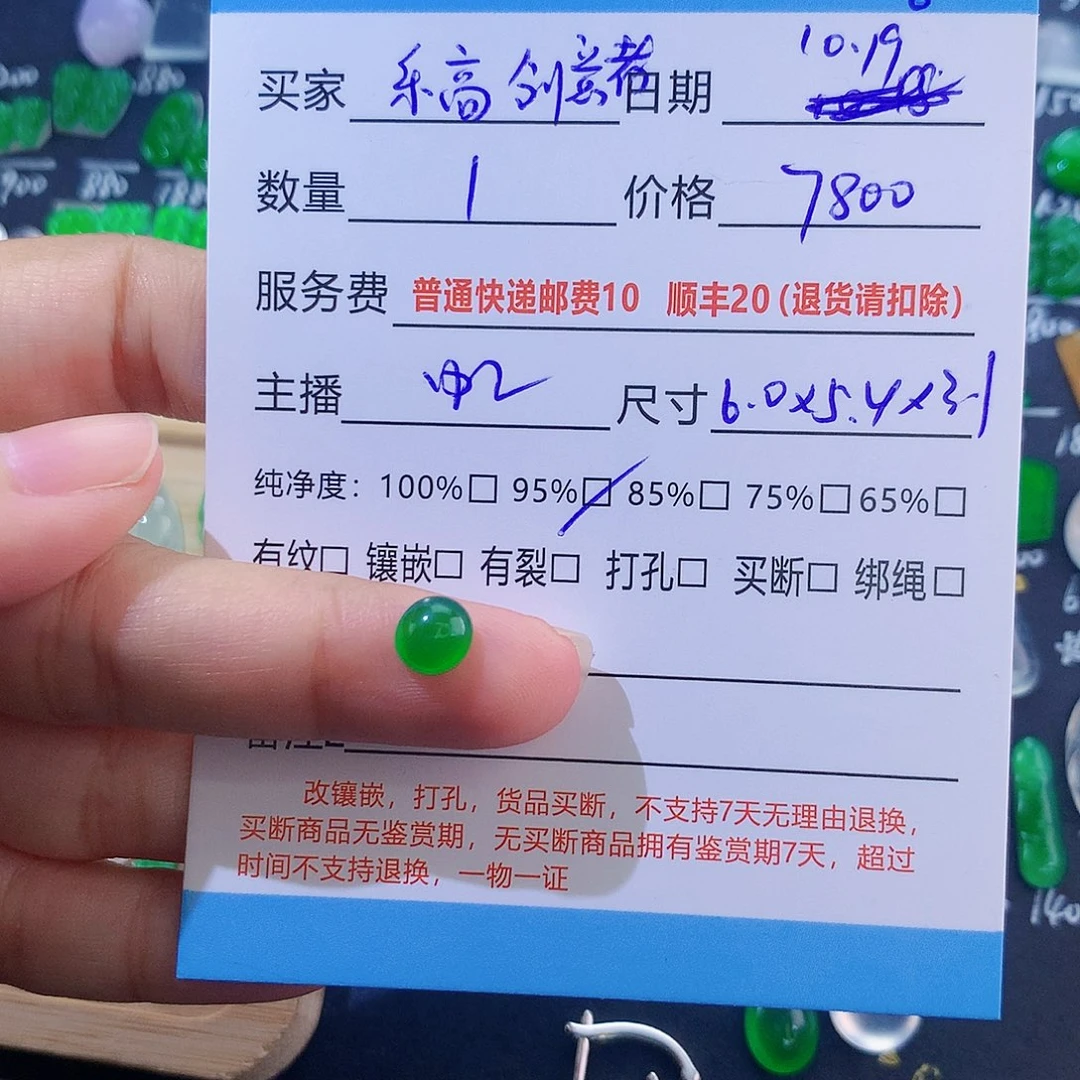 买家 乐高创意者 日期 10.19
数量 1 价格 7800
服务费 普通快递邮费10 顺丰20(退货请扣除)
主播 尺寸 6.0x5.4x3.1
纯净度：100%□ 95%□ 85%□ 75%□ 65%□
有纹□ 镶嵌□ 有裂□ 打孔□ 买断□ 绑绳□
改镶嵌，打孔，货品买断，不支持7天无理由退换，
买断商品无鉴赏期，无买断商品拥有鉴赏期7天，超过
时间不支持退换，一物一证